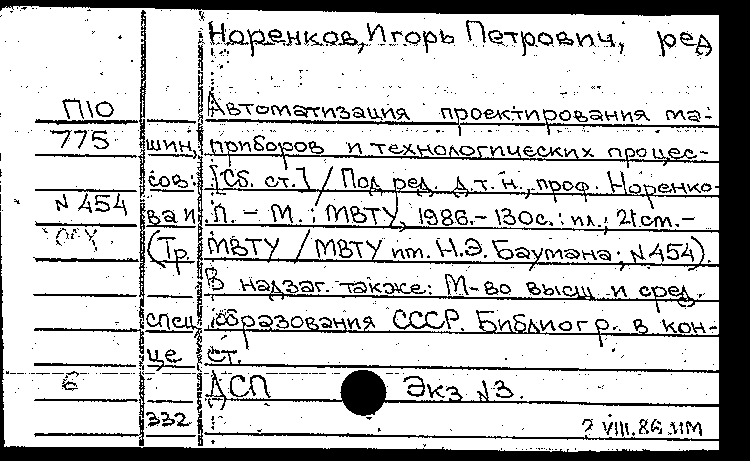 Норенков, Игорь Петрович, ред
П10 Автоматизация проектирования ма-
775 шин, приборов и технологических процес-
сов: [Сб. ст.] / Под ред. д.т.н., проф. Норенко-
N 454 ва И.П. - М.: МВТУ, 1986. - 130с.: ил.; 21см. -
(Тр. МВТУ / МВТУ им. Н.Э. Баумана; N454).
В надзаг. также: М-во высш. и сред.
спец. образования СССР. Библиогр. в кон-
це ст.
6 ДСП Экз N3.
332 VIII.86 ММ